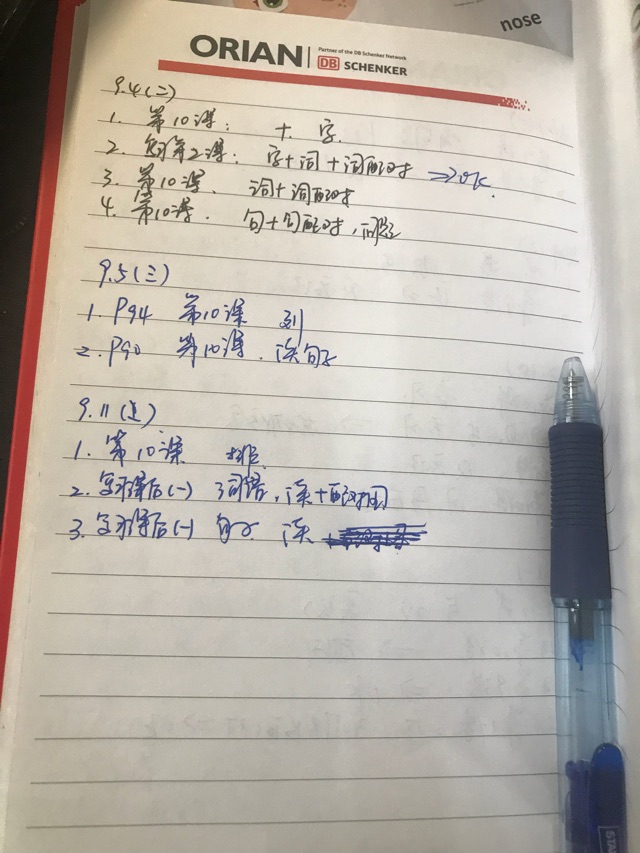 nose
ORIAN Partner of the DB Schenker Network
DB SCHENKER
9.4(二)
1. 第10课: 十. 字.
2. 第2课: 字+词+词配对
3. 第10课. 词+词配对
4. 第10课. 句+句配对,
9.5(三)
1. P94 第10课
2. P90 第10课. 读句子
9.11(
1. 第10课 排
2. 复习课后(一) 词语, 读+配对
3. 复习课后(一) 句子 读